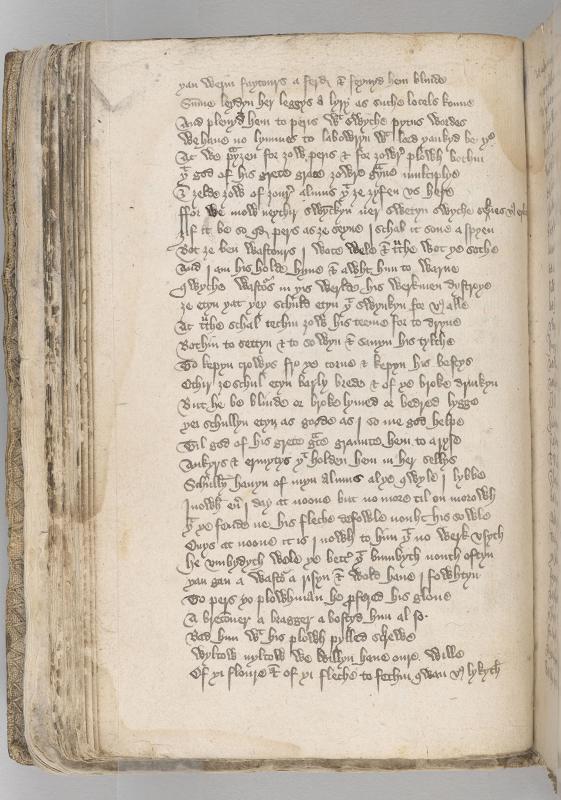 yan werin faytours a ferd & feynyd hem blinde
Summe leydyn her leggys a lyry as suche losels konne
And pleynyd hem to pers wt swyche pytus wordes
We haue no lymmes to labowryn wt lord yankyd be ye
At we prayen for zow pers & for zowr plowh bothin
yt god of his grete grace zowre grayne multiplye
& zelde zow of zour almus yt ze zyfen vs here
ffor we mow neythir swynkyn ner swetyn swyche
If it be so qd pers as ze seyne I schal it sone aspyen
Bot ze ben wastours I wote wele & truthe wot ye sothe
And I am his holde hyne & awht him to warne
qwyche wastours in yis werlde his werkmen dystroye
ze etyn yat yey schuld etyn yt swynkyn for vs alle
At truthe schal techin zow his teeme for to dryue
Bothin to settyn & to sowyn & sauyn his tylthe
To kepyn crowys fro ye corne & kepyn his bestys
Othir ze schul etyn barly brede & of ye broke drinkyn
But he be blinde or broke lymed or bedred lygge
yei schullyn etyn as goode as I so me god helpe
Til god of his grete grace graunte hem to aryse
Ankyrs & ermytys yt holden hem in her sellys
Schullyn hauyn of myn almus al ye qwyle I lybbe
Inowh eueri day at noone but no more til on morowh
yt ye fende ne his flesche defowle nouht his sowle
Onys at noone it is Inowh to him yt no werk vsyth
he vmbydyth wole ye better yt bummyth nouth oftyn
yan gan a wastour arysyn & wold haue I fowhtyn
To pers yo plowhman he profered his gloue
A bretoner a bragger a bostyd him al so
Bad him wt his plowh pylled screwe
Wyltow nyltow we willyn haue oure wille
Of yi floure & of yi flesche to fechin qwan vs lykyth